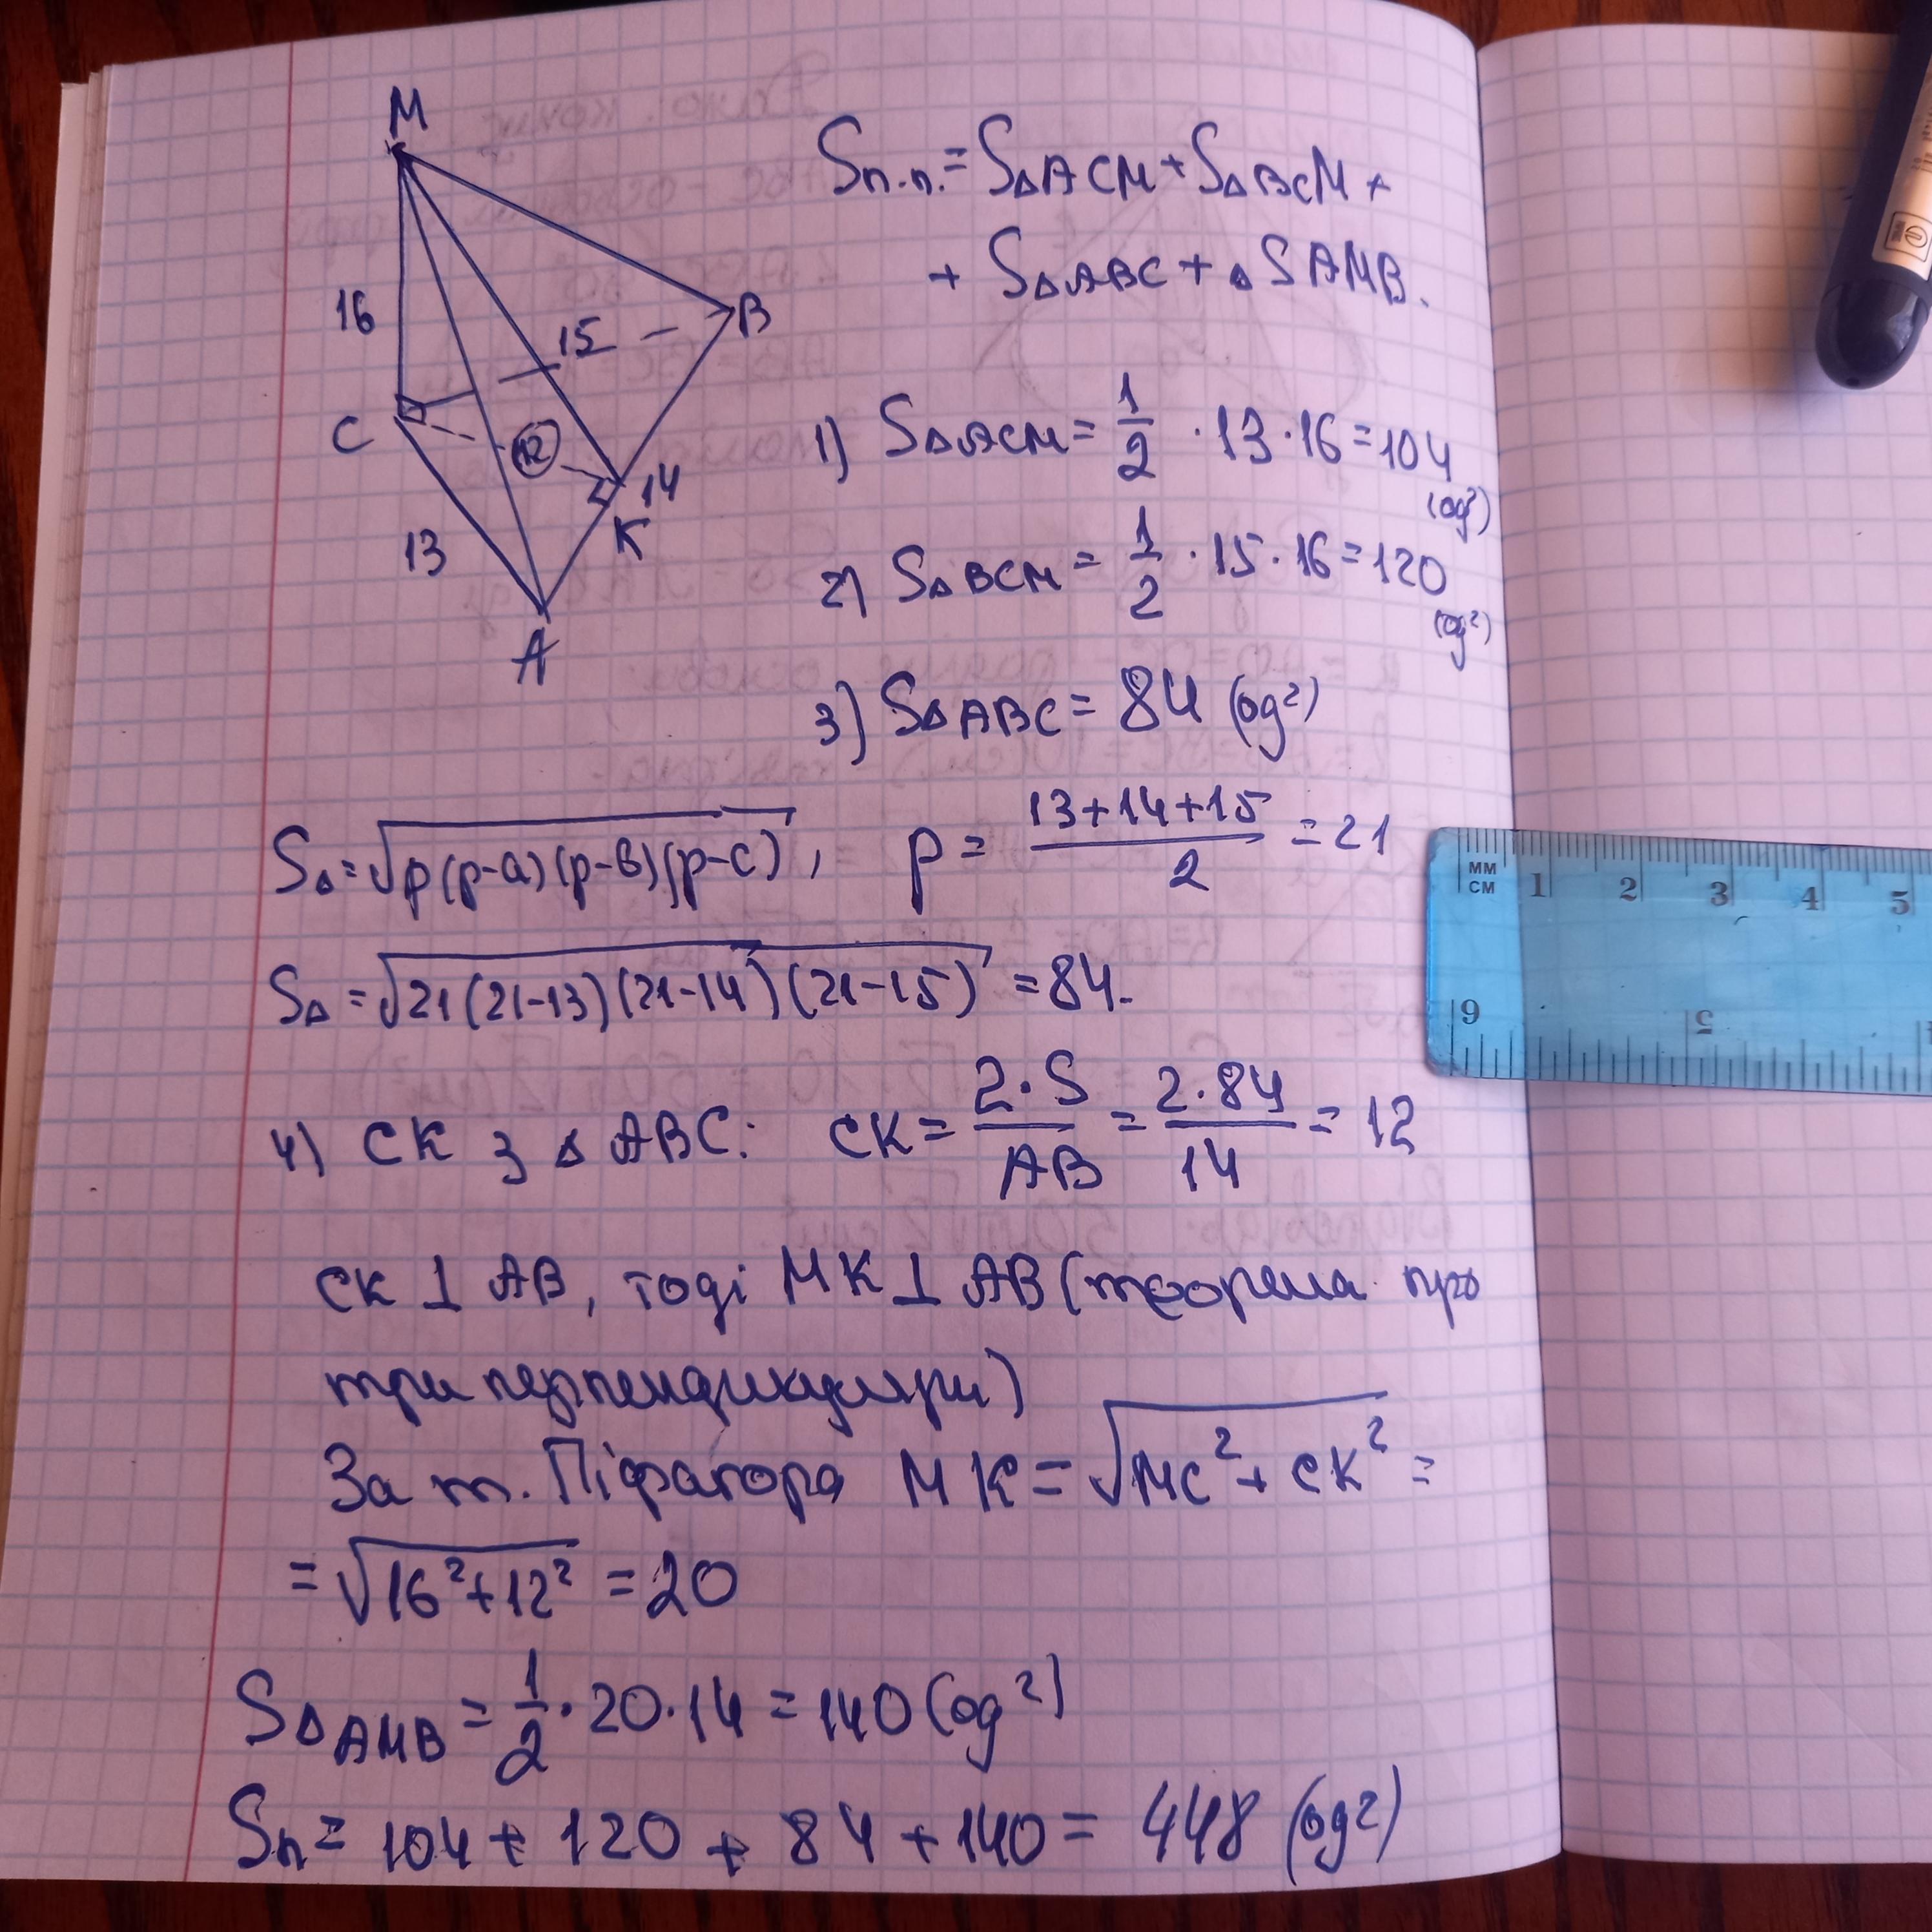 M
16
15
B
C
12
14
K
13
A
Sп.п.=S△ACM+S△BCM+
+ S△ABC+△SAMB.
1) S△ACM=1/2·13·16=104 (од²)
2) S△BCM=1/2·15·16=120 (од²)
3) S△ABC=84 (од²)
S△=√p(p-a)(p-в)(p-c), p=(13+14+15)/2=21
S△=√21(21-13)(21-14)(21-15)=84.
4) CK з △ABC: CK=2·S/AB=2·84/14=12
CK⊥AB, тоді MK⊥AB (теорема про
три перпендикуляри)
За т. Піфагора MK=√MC²+CK²=
=√16²+12²=20
S△AMB=1/2·20·14=140 (од²)
Sп=104+120+84+140=448 (од²)
мм
см 1 2 3 4 5
9 5